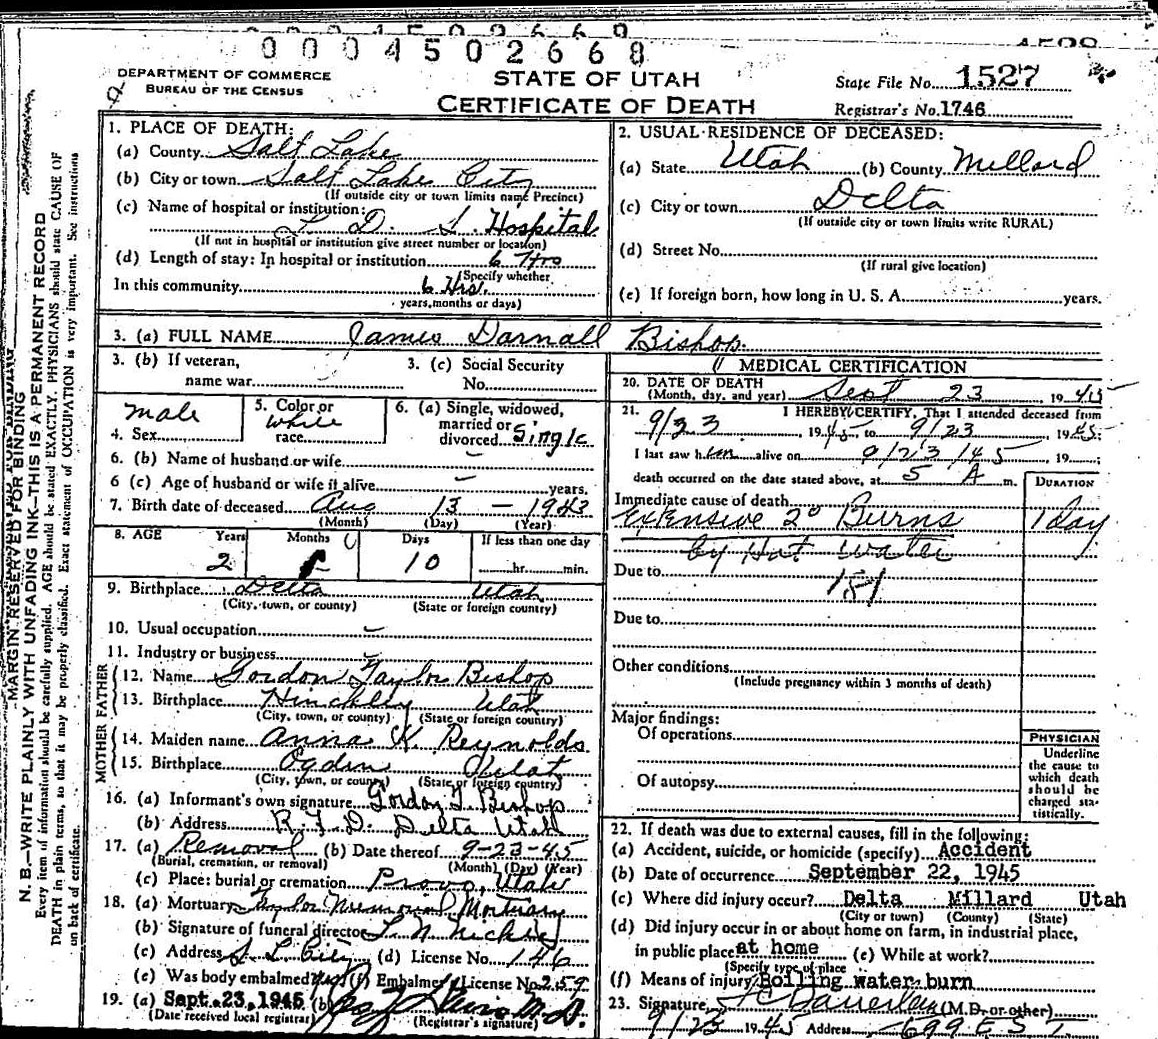 0004502669
0004502668
1528
DEPARTMENT OF COMMERCE
BUREAU OF THE CENSUS
STATE OF UTAH
CERTIFICATE OF DEATH
State File No. 1527
Registrar's No. 1746
MARGIN RESERVED FOR BINDING
N. B.—WRITE PLAINLY WITH UNFADING INK—THIS IS A PERMANENT RECORD
Every item of information should be carefully supplied. AGE should be stated EXACTLY. PHYSICIANS should state CAUSE OF
DEATH in plain terms, so that it may be properly classified. Exact statement of OCCUPATION is very important. See instructions
on back of certificate.
1. PLACE OF DEATH:
(a) County Salt Lake
(b) City or town Salt Lake City
(If outside city or town limits name Precinct)
(c) Name of hospital or institution:
L. D. S. Hospital
(If not in hospital or institution give street number or location)
(d) Length of stay: In hospital or institution 6 Hrs
(Specify whether
In this community 6 Hrs.
years, months or days)
2. USUAL RESIDENCE OF DECEASED:
(a) State Utah (b) County Millard
(c) City or town Delta
(If outside city or town limits write RURAL)
(d) Street No.
(If rural give location)
(e) If foreign born, how long in U. S. A. years.
3. (a) FULL NAME James Darnall Bishop
3. (b) If veteran, name war
3. (c) Social Security No.
4. Sex male
5. Color or race White
6. (a) Single, widowed, married or divorced Single
6. (b) Name of husband or wife -
6 (c) Age of husband or wife if alive - years.
7. Birth date of deceased Aug 13 - 1943
(Month) (Day) (Year)
8. AGE Years Months Days If less than one day
2 1 10 hr. min.
9. Birthplace Delta Utah
(City, town, or county) (State or foreign country)
10. Usual occupation -
11. Industry or business
FATHER
12. Name Gordon Taylor Bishop
13. Birthplace Hinckley Utah
(City, town, or county) (State or foreign country)
MOTHER
14. Maiden name Anna K. Reynolds
15. Birthplace Ogden Utah
(City, town, or county) (State or foreign country)
16. (a) Informant's own signature Gordon T. Bishop
(b) Address R. F. D. Delta Utah
17. (a) Removal (b) Date thereof 9-23-45
(Burial, cremation, or removal) (Month) (Day) (Year)
(c) Place: burial or cremation Provo, Utah
18. (a) Mortuary Taylor Memorial Mortuary
(b) Signature of funeral director L. N.
(c) Address S L City (d) License No. 146
(e) Was body embalmed yes (f) Embalmer License No. 259
19. (a) Sept. 23, 1945 (b) M. D.
(Date received local registrar) (Registrar's signature)
MEDICAL CERTIFICATION
20. DATE OF DEATH
(Month, day, and year) Sept 23 1945
21. I HEREBY CERTIFY, That I attended deceased from
9/23, 1945, to 9/23 1945;
I last saw him alive on 9/23/45, 19
death occurred on the date stated above, at 5 A m.
DURATION
Immediate cause of death
Extensive 2° Burns 1 day
by Hot water
Due to 181
Due to
Other conditions
(Include pregnancy within 3 months of death)
Major findings:
Of operations
Of autopsy
PHYSICIAN
Underline
the cause to
which death
should be
charged sta-
tistically.
22. If death was due to external causes, fill in the following:
(a) Accident, suicide, or homicide (specify) Accident
(b) Date of occurrence September 22, 1945
(c) Where did injury occur? Delta Millard Utah
(City or town) (County) (State)
(d) Did injury occur in or about home on farm, in industrial place,
in public place at home (e) While at work?
(Specify type of place
(f) Means of injury Boiling water burn
23. Signature (M.D. or other)
9/23 1945 Address 699 E S T